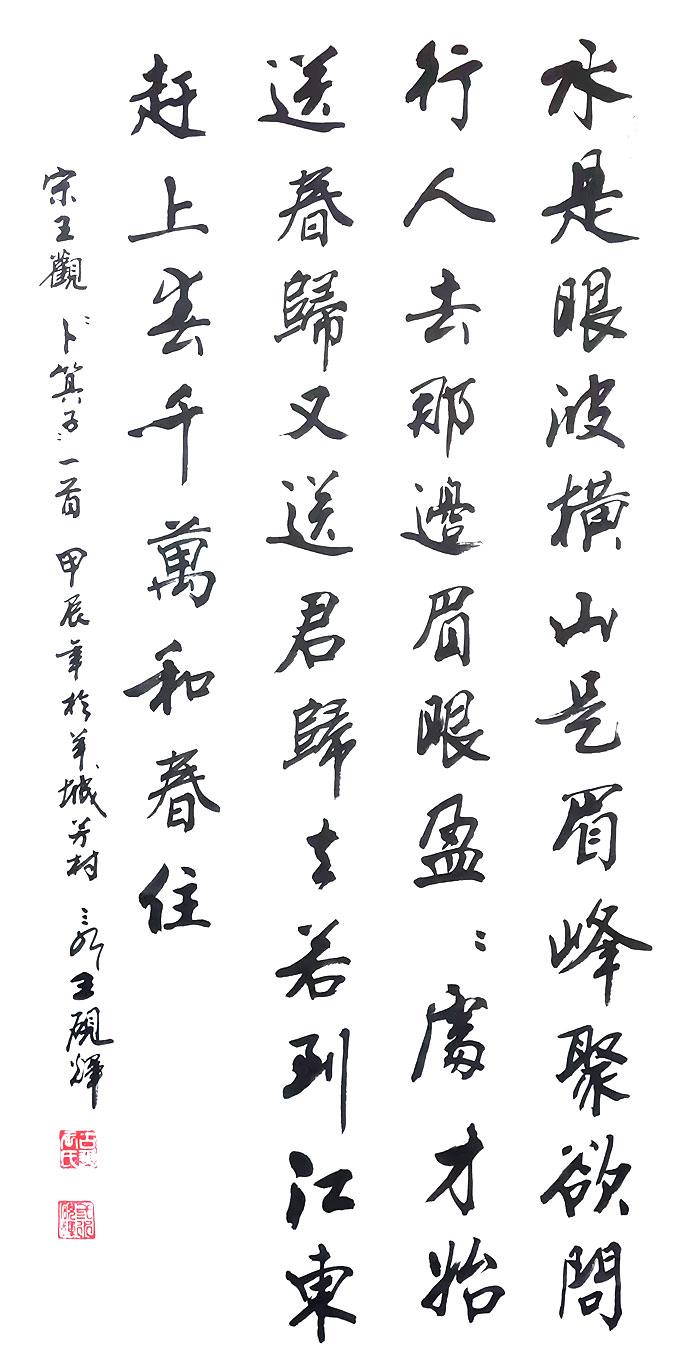 水是眼波橫山是眉峰聚欲問
行人去那邊眉眼盈〻處才始
送春歸又送君歸去若到江東
赶上春千萬和春住
宋王觀 "卜算子"一首 甲辰年於羊城芳村 三水王硯輝